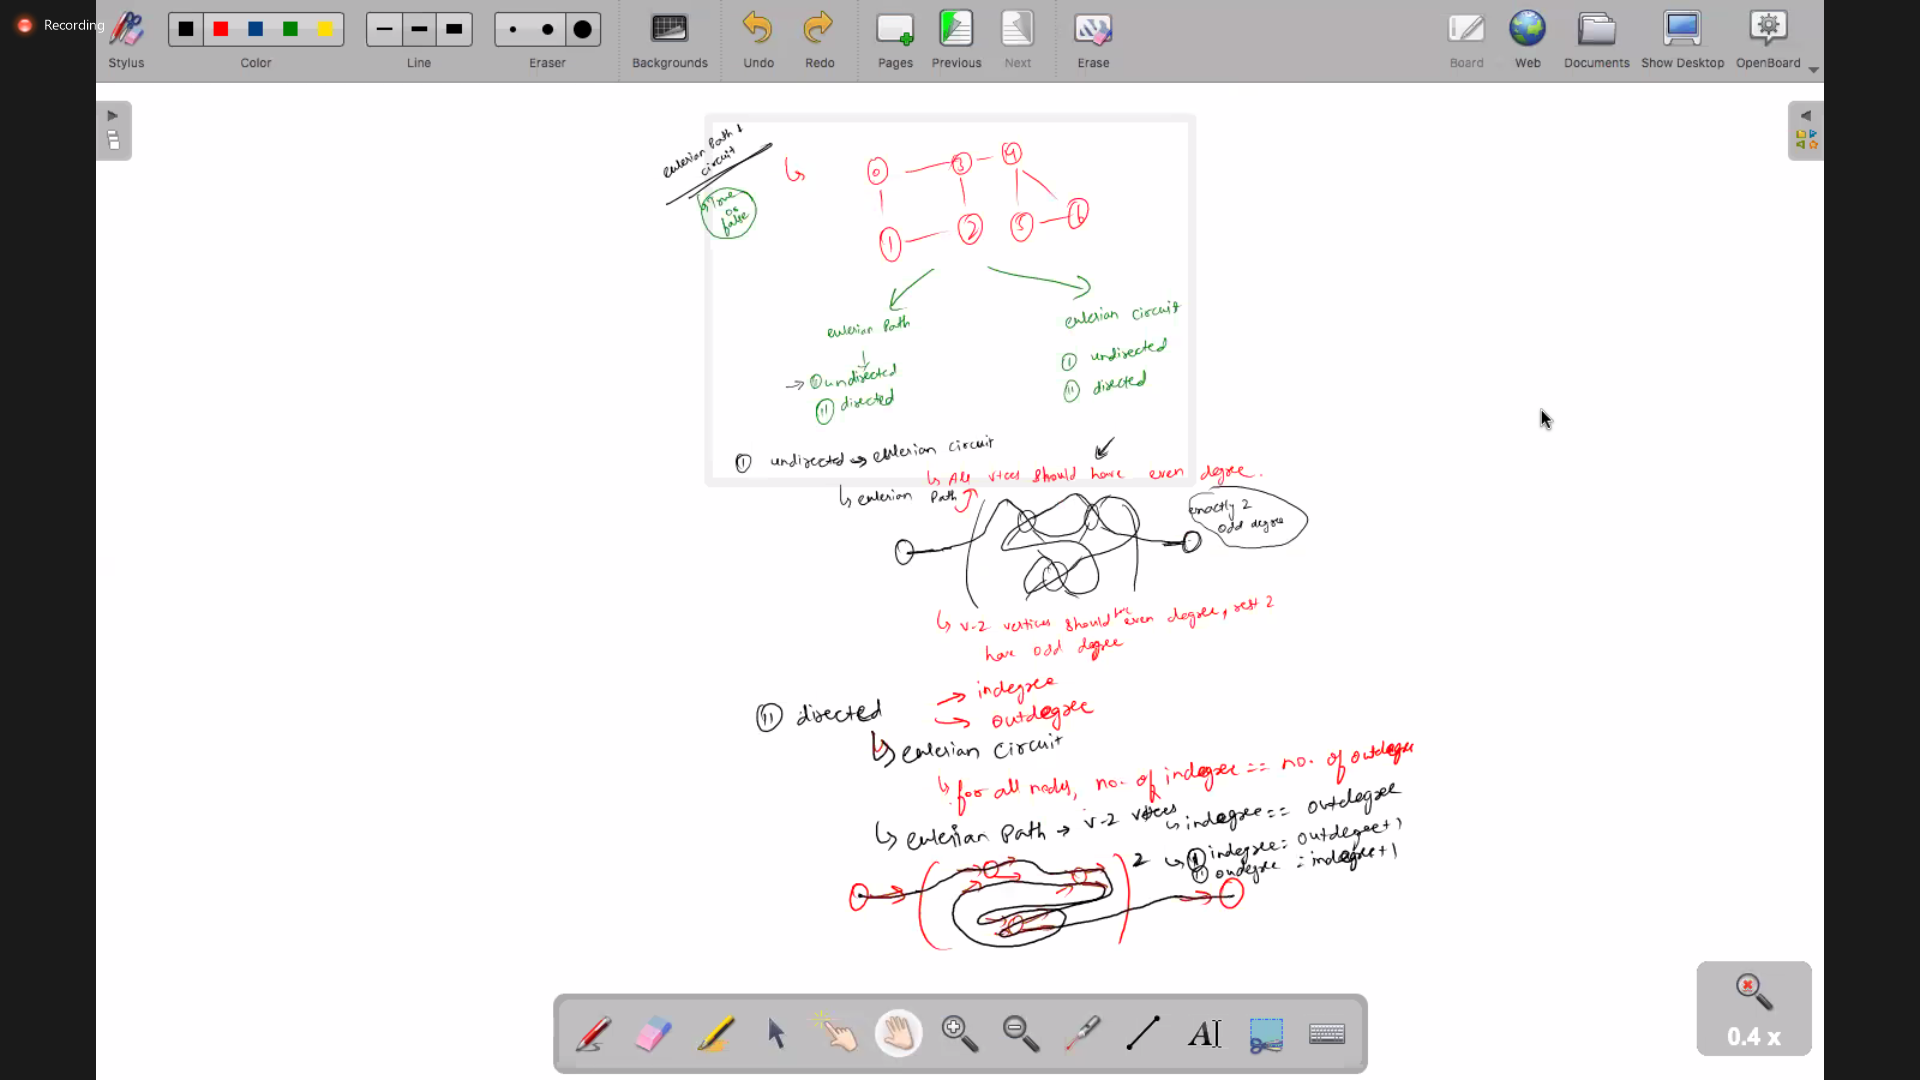 Recording
Stylus
Color
Line
Eraser
Backgrounds
Undo
Redo
Pages
Previous
Next
Erase
Board
Web
Documents
Show Desktop
OpenBoard
eulerian Path &
circuit
↳ True
or
false
↳
0
3
4
1
2
5
6
eulerian Path
↓
→ (I) undirected
(II) directed
eulerian circuit
(I) undirected
(II) directed
(I) undirected → eulerian circuit
↳ All vtces should have even degree.
↳ eulerian Path
exactly 2
odd degree
↳ v-2 vertices should have even degree, rest 2
have odd degree
(II) directed
→ indegree
→ outdegree
↳ eulerian circuit
↳ for all nodes, no. of indegree == no. of outdegree
↳ eulerian Path → v-2 vtces
↳ indegree == outdegree
2 ↳ (I) indegree = outdegree+1
(II) oudegree = indegree+1
0.4 x